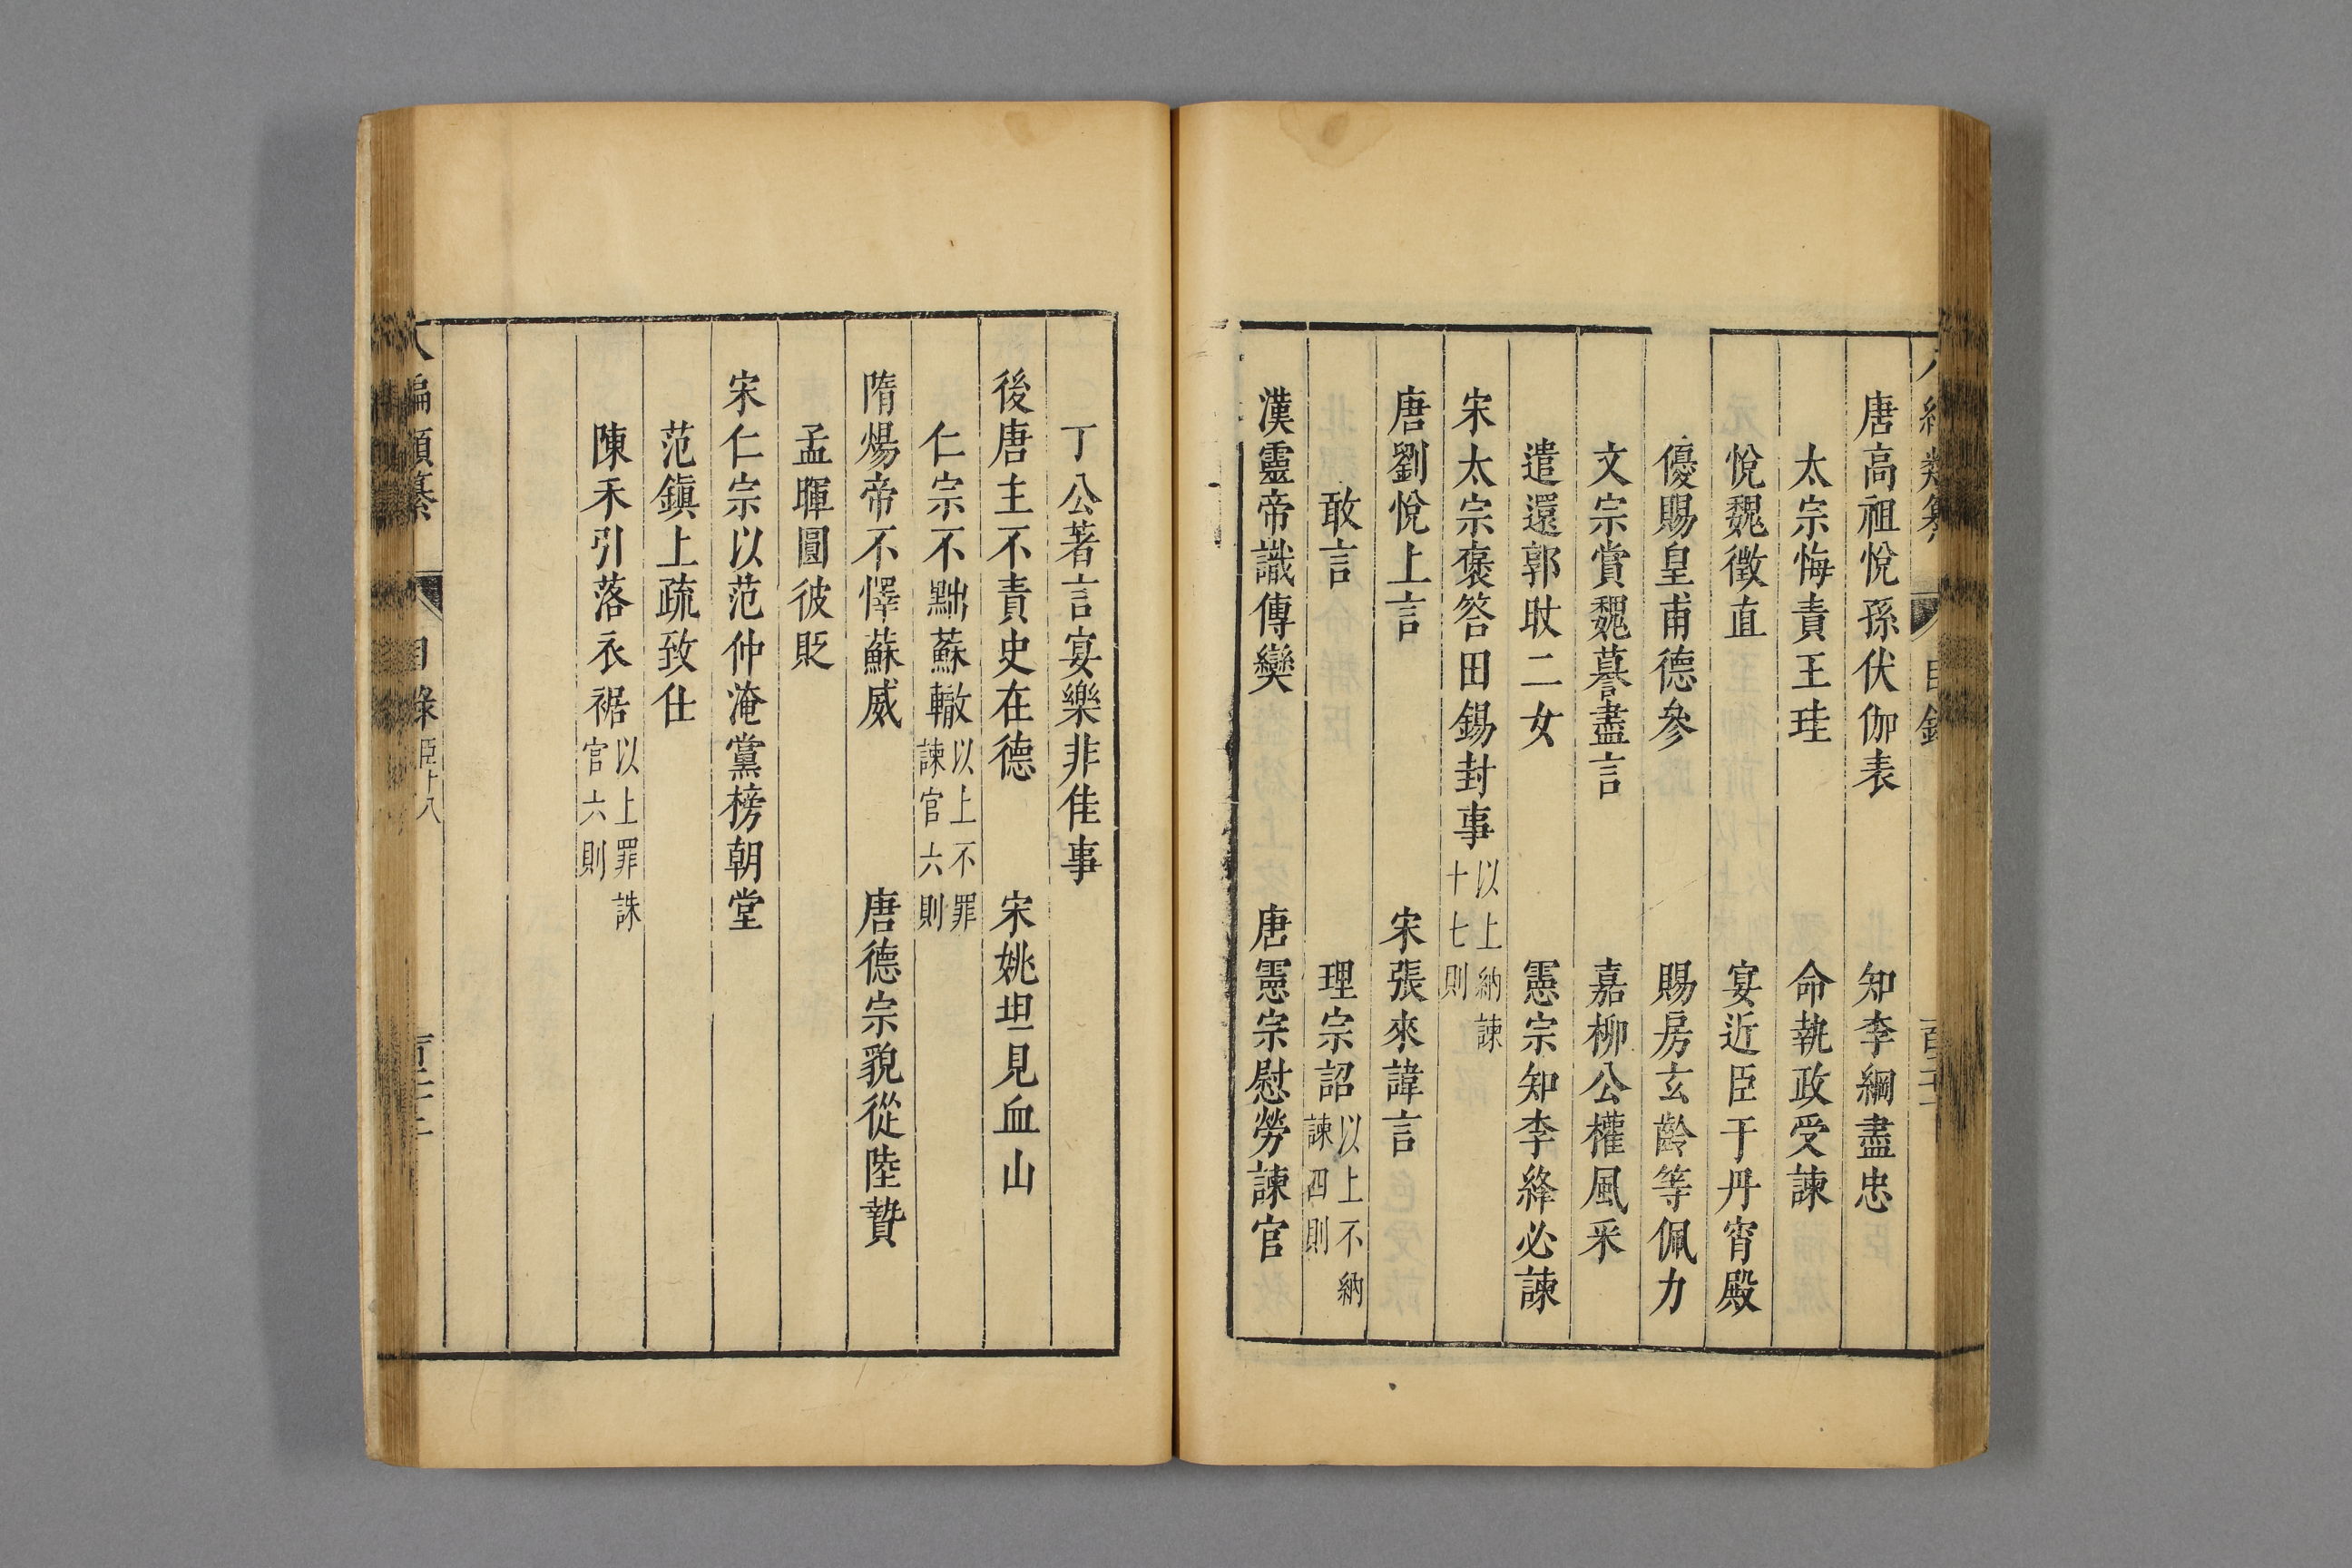 唐高祖悅孫伏伽表　知李綱盡忠
太宗悔責王珪　命執政受諫
悅魏徵直　宴近臣于丹霄殿
優賜皇甫德參　賜房玄齡等佩力
文宗賞魏謩盡言　嘉柳公權風采
遣還郭旼二女　憲宗知李絳必諫
宋太宗褒答田錫封事以上納諫十七則
唐劉悅上言　宋張來諱言
敢言　理宗詔以上不納諫四則
漢靈帝識傅爕　唐憲宗慰勞諫官
丁公著言宴樂非佳事
後唐主不責史在德　宋姚坦見血山
仁宗不黜蘇轍以上不罪諫官六則
隋煬帝不懌蘇威　唐德宗貌從陸贄
孟暉圓彼貶
宋仁宗以范仲淹黨榜朝堂
范鎮上疏致仕
陳禾引落衣裾以上罪誅官六則
編類纂　目錄　臣十八